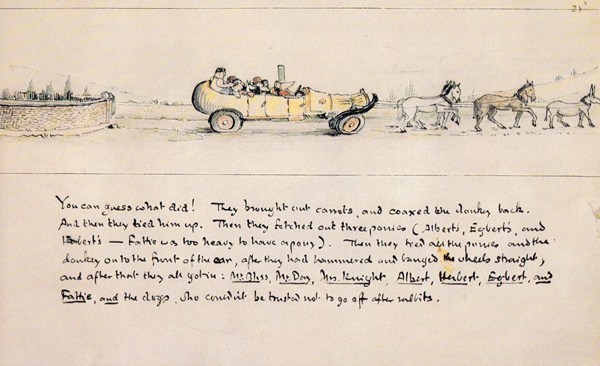 23
You can guess what did! They brought out carrots, and coaxed the donkey back.
And then they tied him up. Then they fetched out three ponies (Albert's, Egbert's, and
Herbert's — Fattie was too heavy to have a pony). Then they tied all the ponies and the
donkey on to the front of the car, after they had hammered and banged the wheels straight,
and after that they all got in: Mr. Bliss, Mr. Day, Mrs. Knight, Albert, Herbert, Egbert, and
Fattie, and the dogs, who couldn't be trusted not to go off after rabbits.